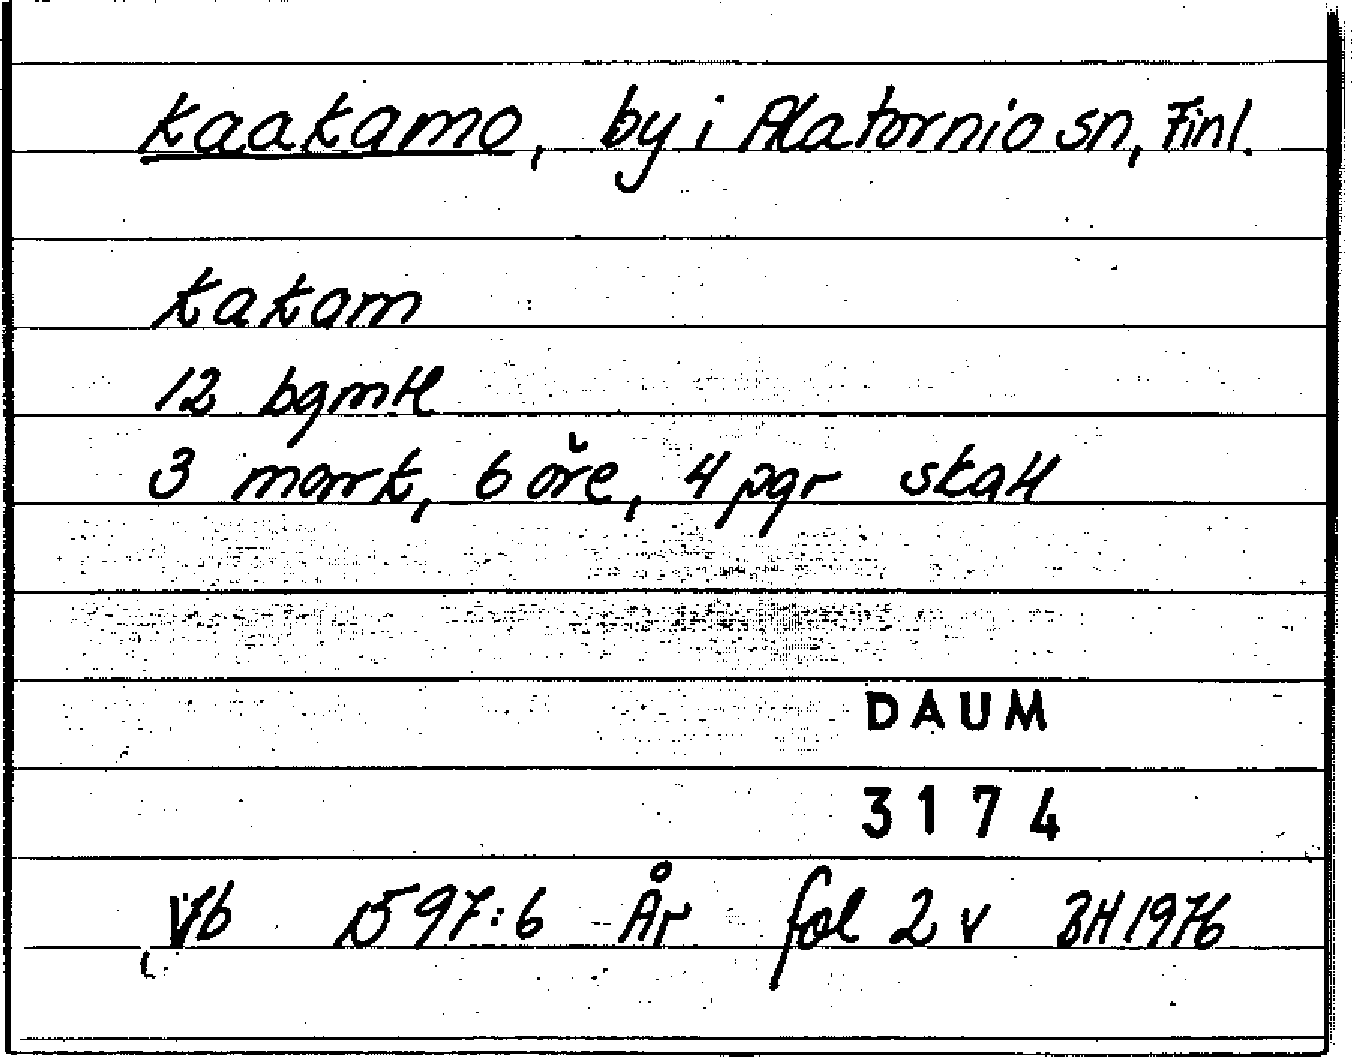 Kaakamo, by i Alatornio sn, Finl.
Kakam
12 bgmtl
3 mark, 6 öre, 4 pgr skatt
DAUM
3174
Vb 1597:6 År fol 2 v BH 1976